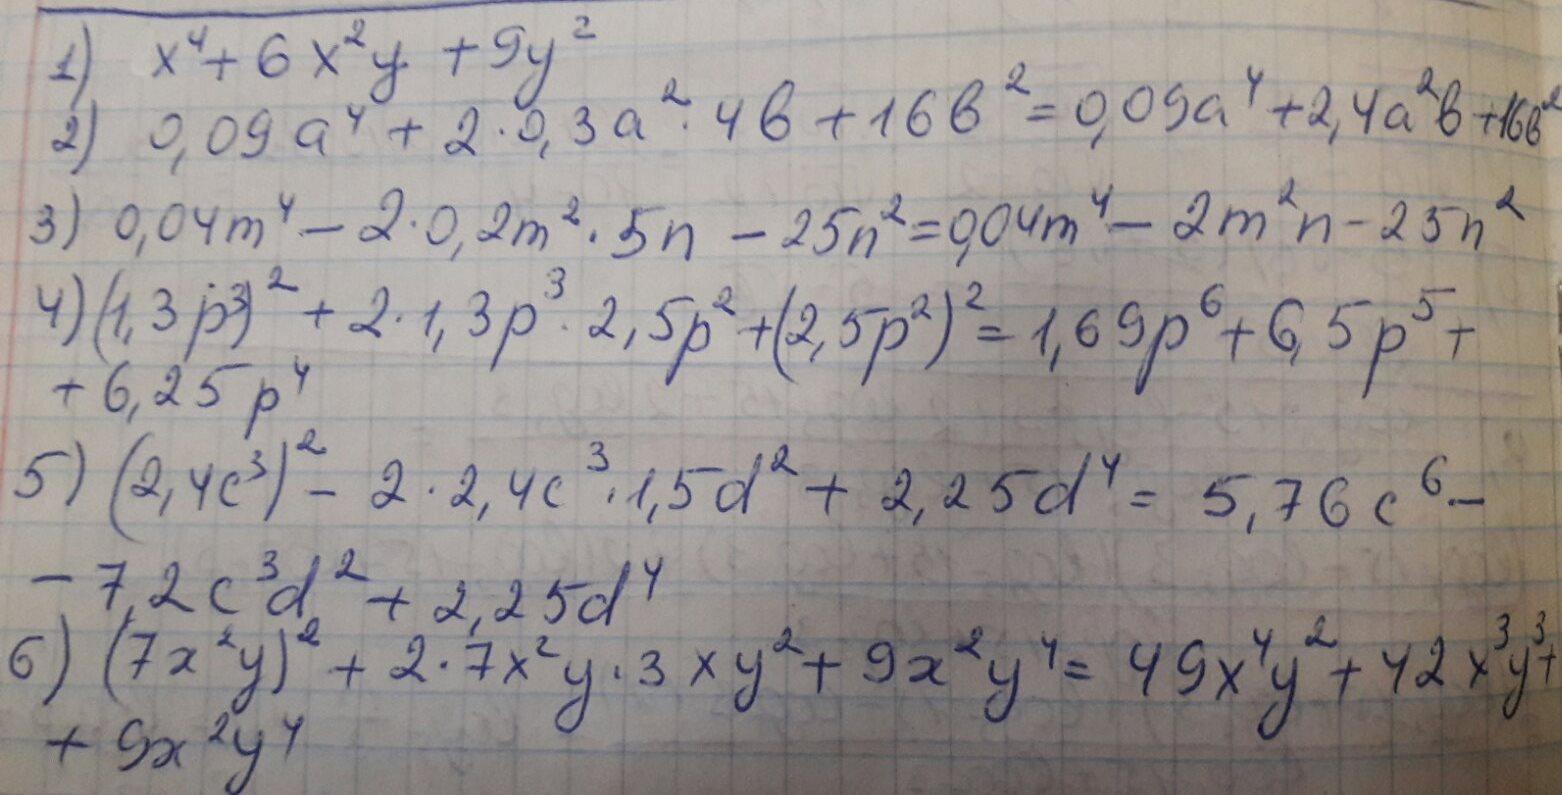 1) x⁴ + 6x²y + 9y²
2) 0,09a⁴ + 2·0,3a²·4b + 16b² = 0,09a⁴ + 2,4a²b + 16b²
3) 0,04m⁴ − 2·0,2m²·5n − 25n² = 0,04m⁴ − 2m²n − 25n²
4) (1,3p³)² + 2·1,3p³·2,5p² + (2,5p²)² = 1,69p⁶ + 6,5p⁵ +
+ 6,25p⁴
5) (2,4c³)² − 2·2,4c³·1,5d² + 2,25d⁴ = 5,76c⁶ −
− 7,2c³d² + 2,25d⁴
6) (7x²y)² + 2·7x²y·3xy² + 9x²y⁴ = 49x⁴y² + 42x³y³ +
+ 9x²y⁴